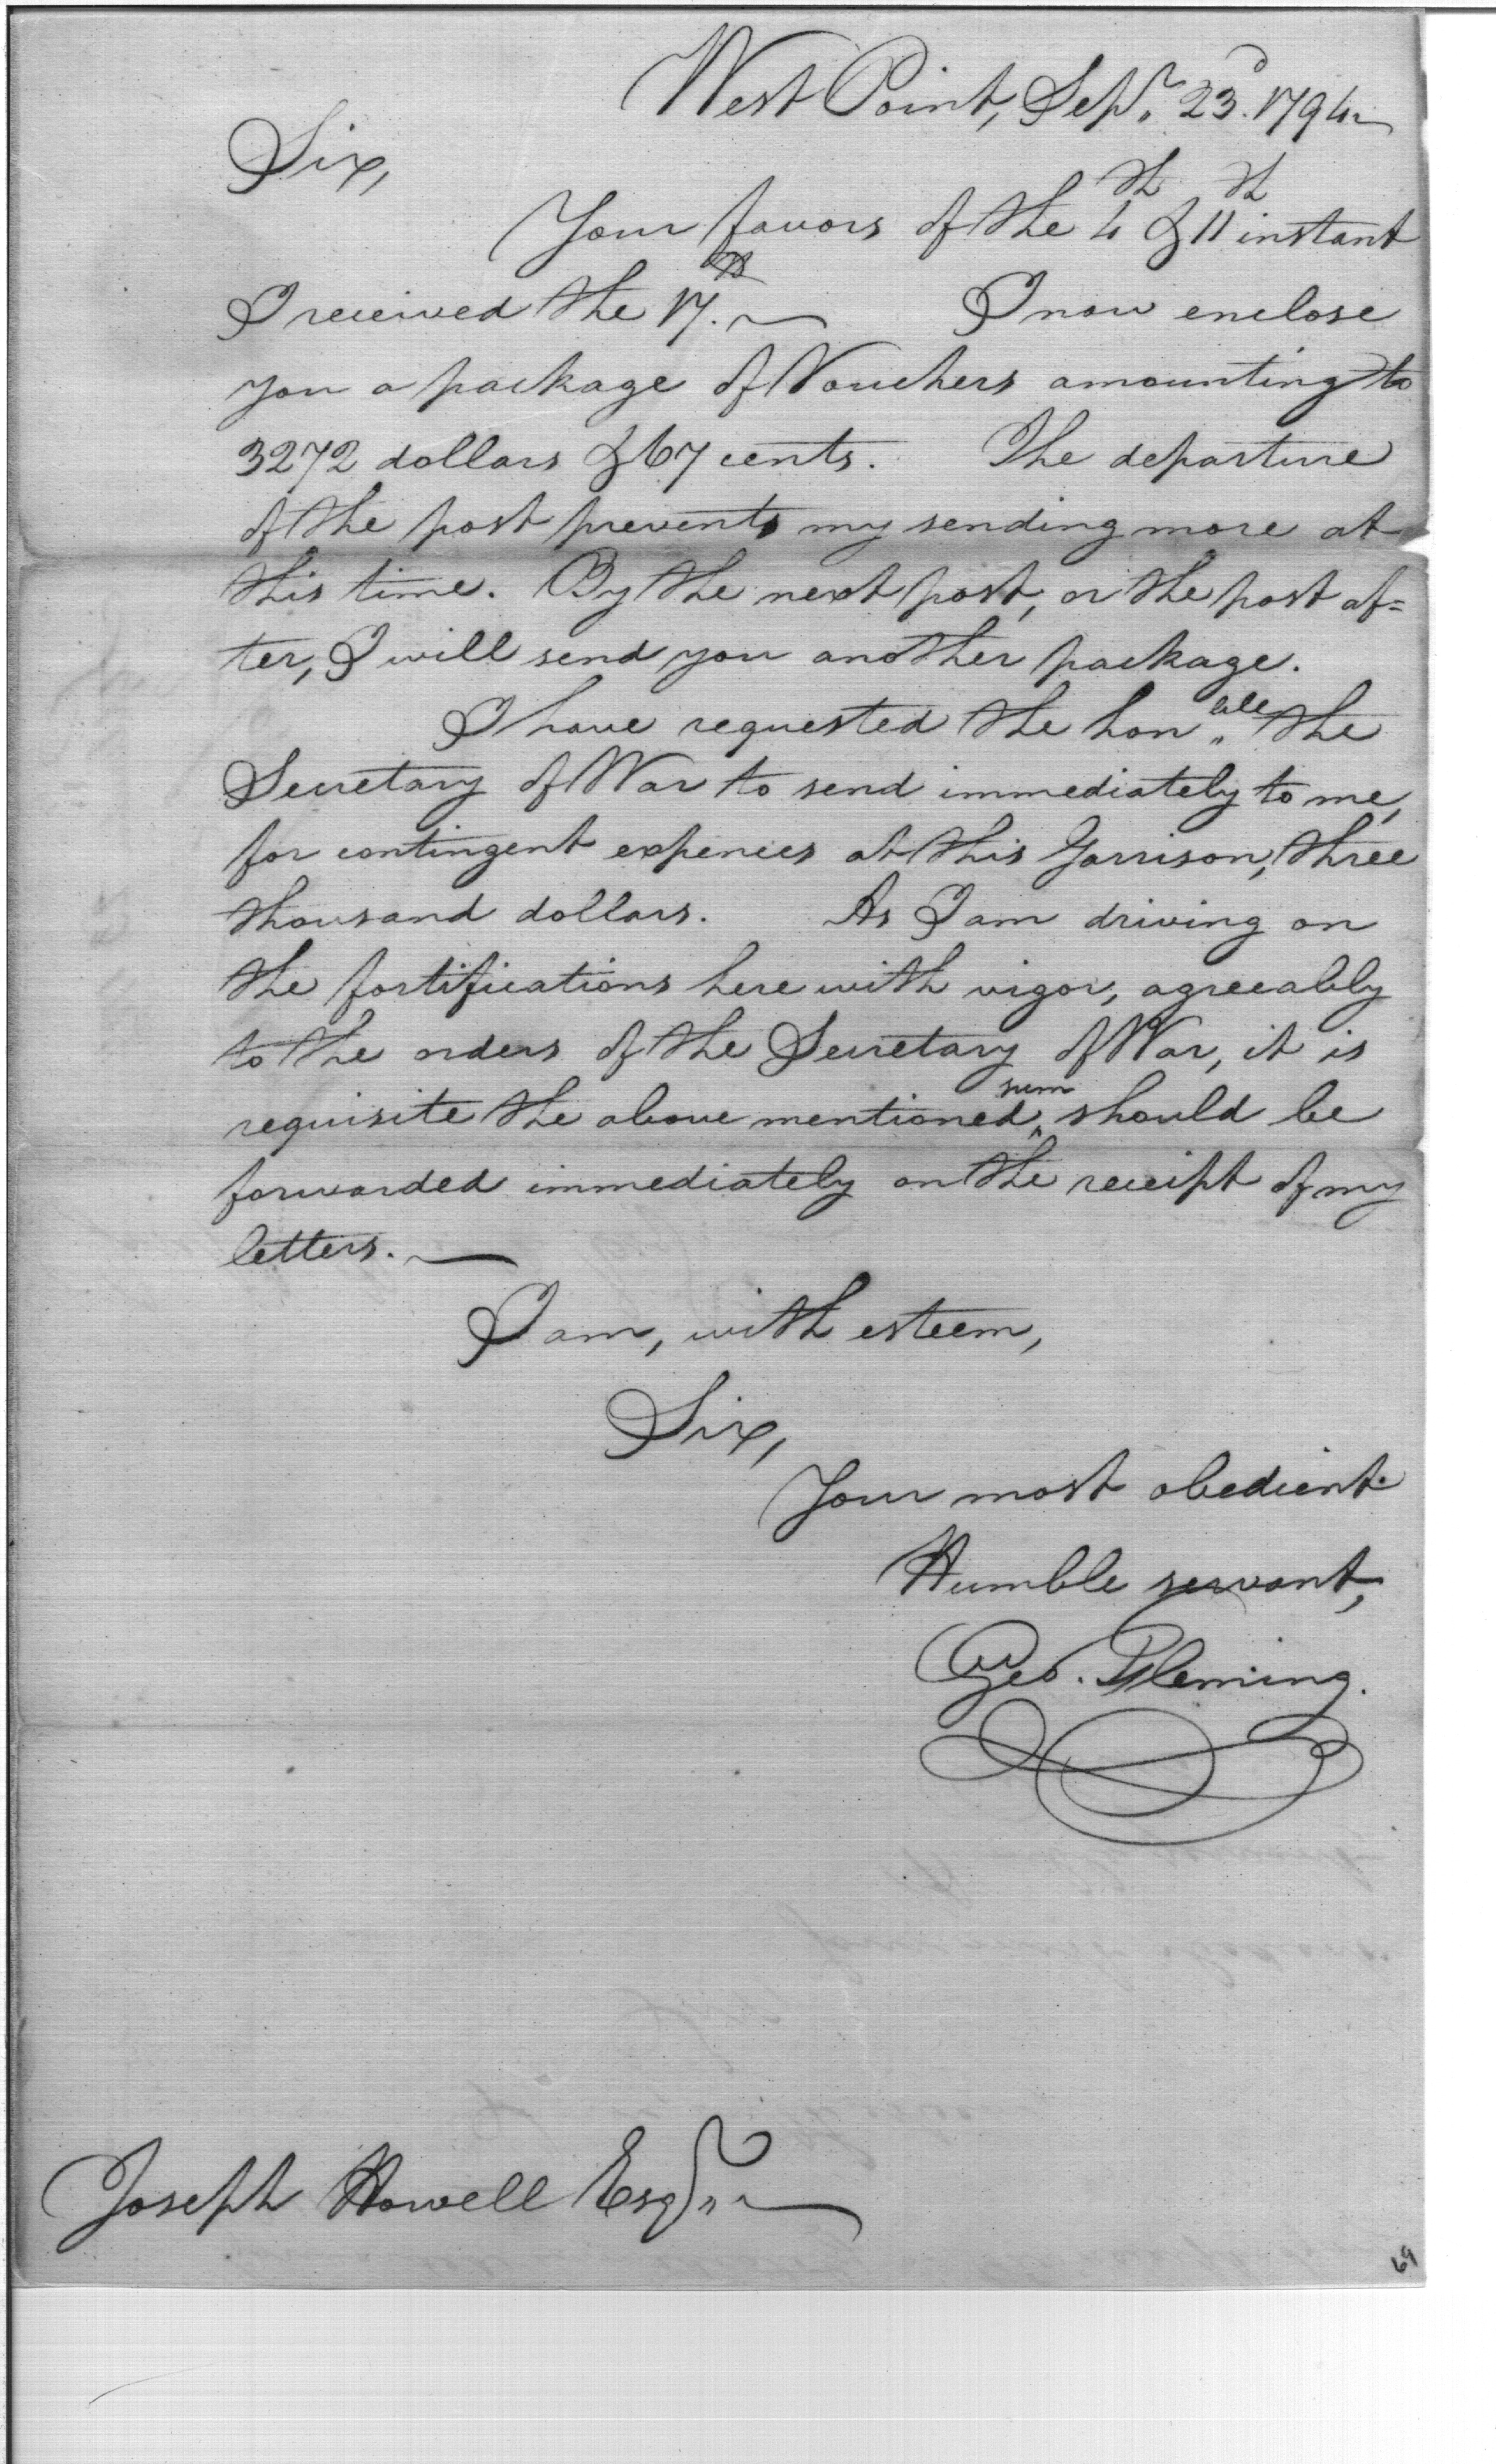 West Point, Sepr. 23d. 1794
Sir,
Your favors of the 4th & 11th instant
I received the 17th. I now enclose
you a package of Vouchers amounting to
3272 dollars & 67 cents. The departure
of the post prevents my sending more at
this time. By the next post, or the post af=
ter, I will send you another package.
I have requested the honble the
Secretary of War to send immediately to me,
for contingent expences at this Garrison, three
thousand dollars. As I am driving on
the fortifications here with vigor, agreeably
to the orders of the Secretary of War, it is
requisite the above mentioned sum should be
forwarded immediately on the receipt of my
letters.
I am, with esteem,
Sir,
Your most obedient
Humble servant,
Geo. Fleming.
Joseph Howell Esqr.
69